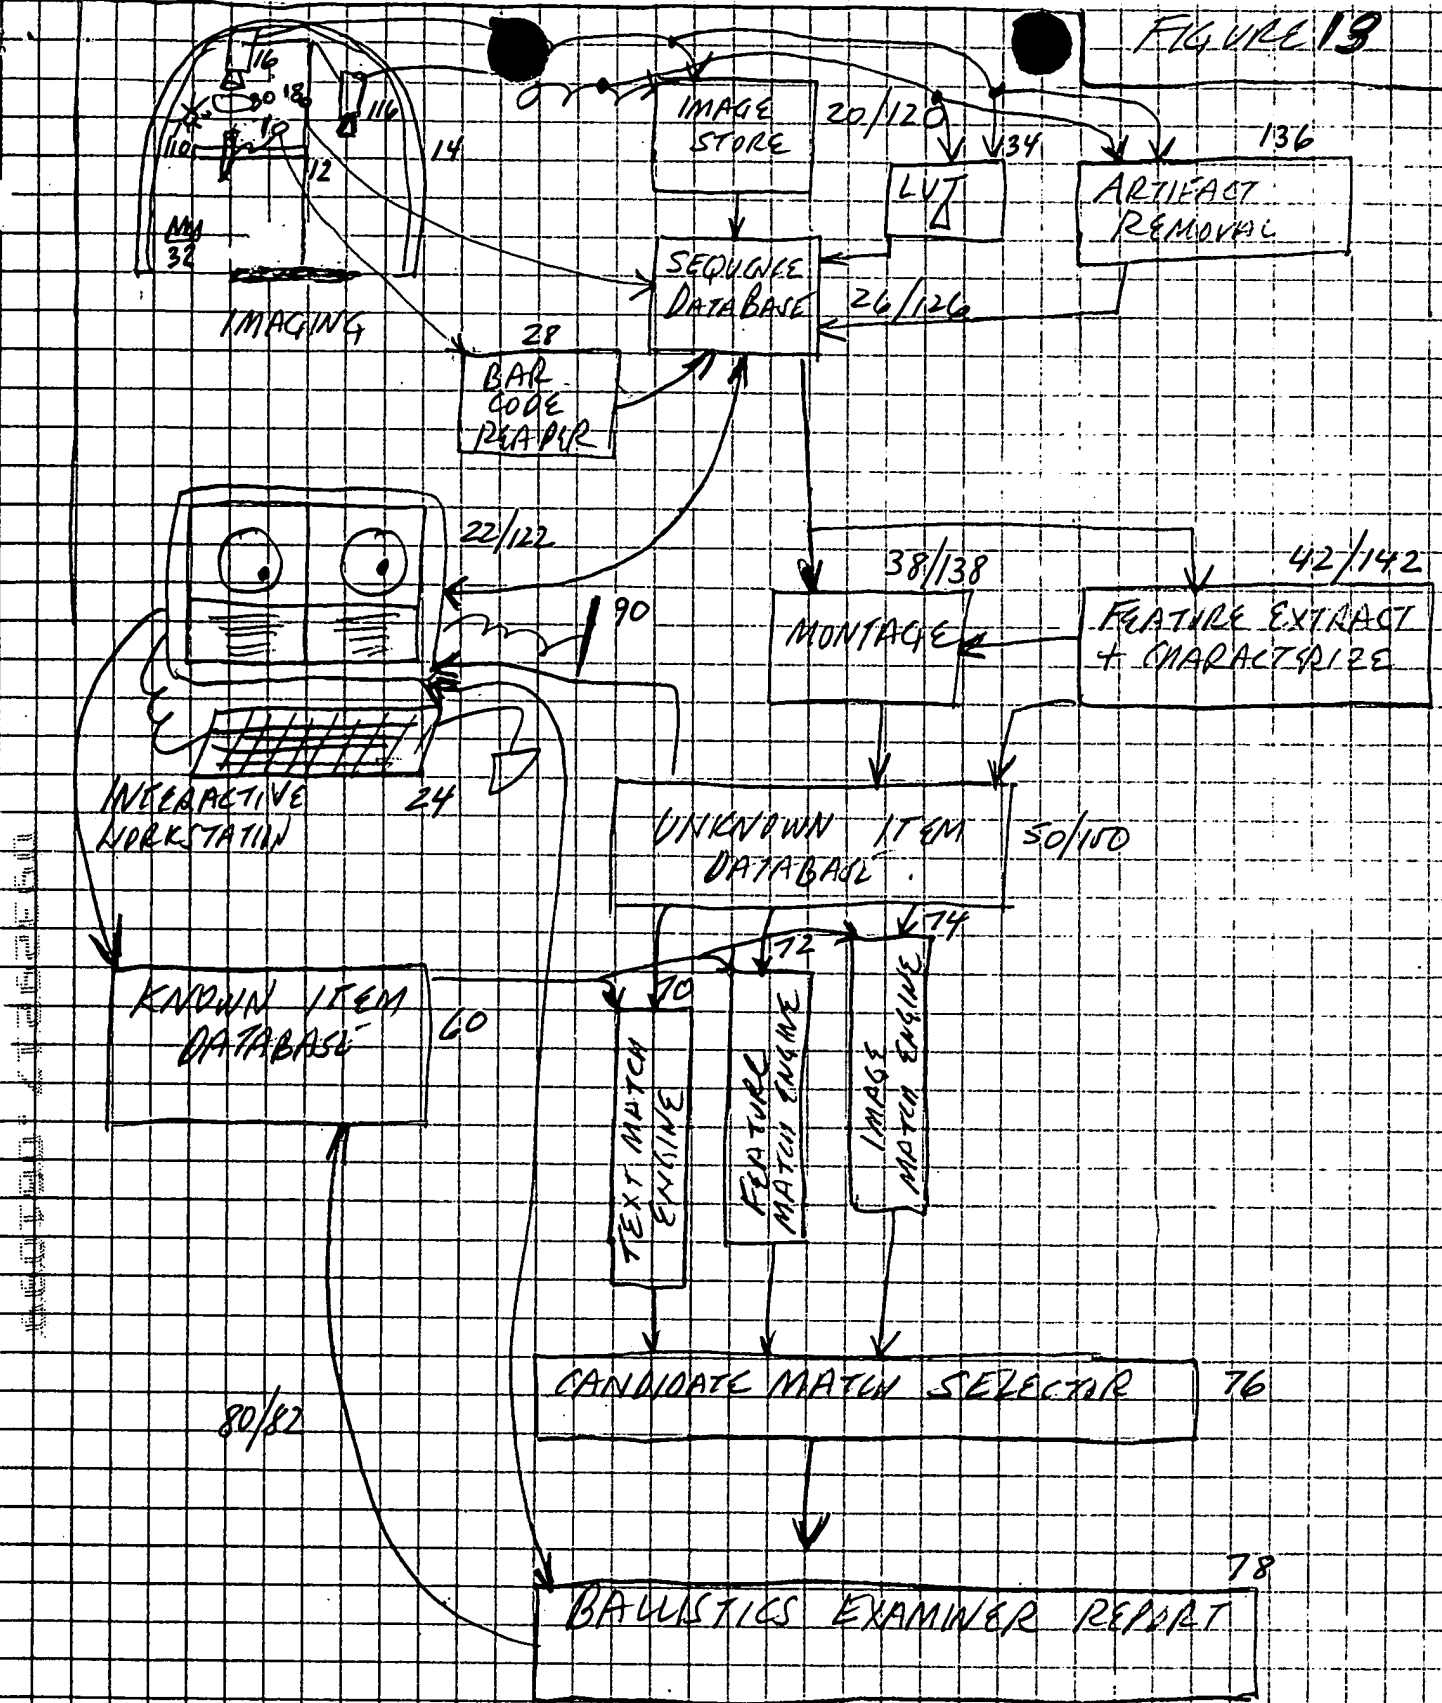 FIGURE 13
16
30
18
116
110
10
12
14
32
IMAGING
IMAGE
STORE
20/120
34
LUT
136
ARTIFACT
REMOVAL
SEQUENCE
DATABASE
26/126
28
BAR
CODE
READER
22/122
90
38/138
MONTAGE
42/142
FEATURE EXTRACT
+ CHARACTERIZE
INTERACTIVE
WORKSTATION
24
UNKNOWN ITEM
DATABASE
50/150
KNOWN ITEM
DATABASE
60
70
72
74
TEXT MATCH
ENGINE
FEATURE
MATCH ENGINE
IMAGE
MATCH ENGINE
CANDIDATE MATCH SELECTOR
76
80/82
78
BALLISTICS EXAMINER REPORT